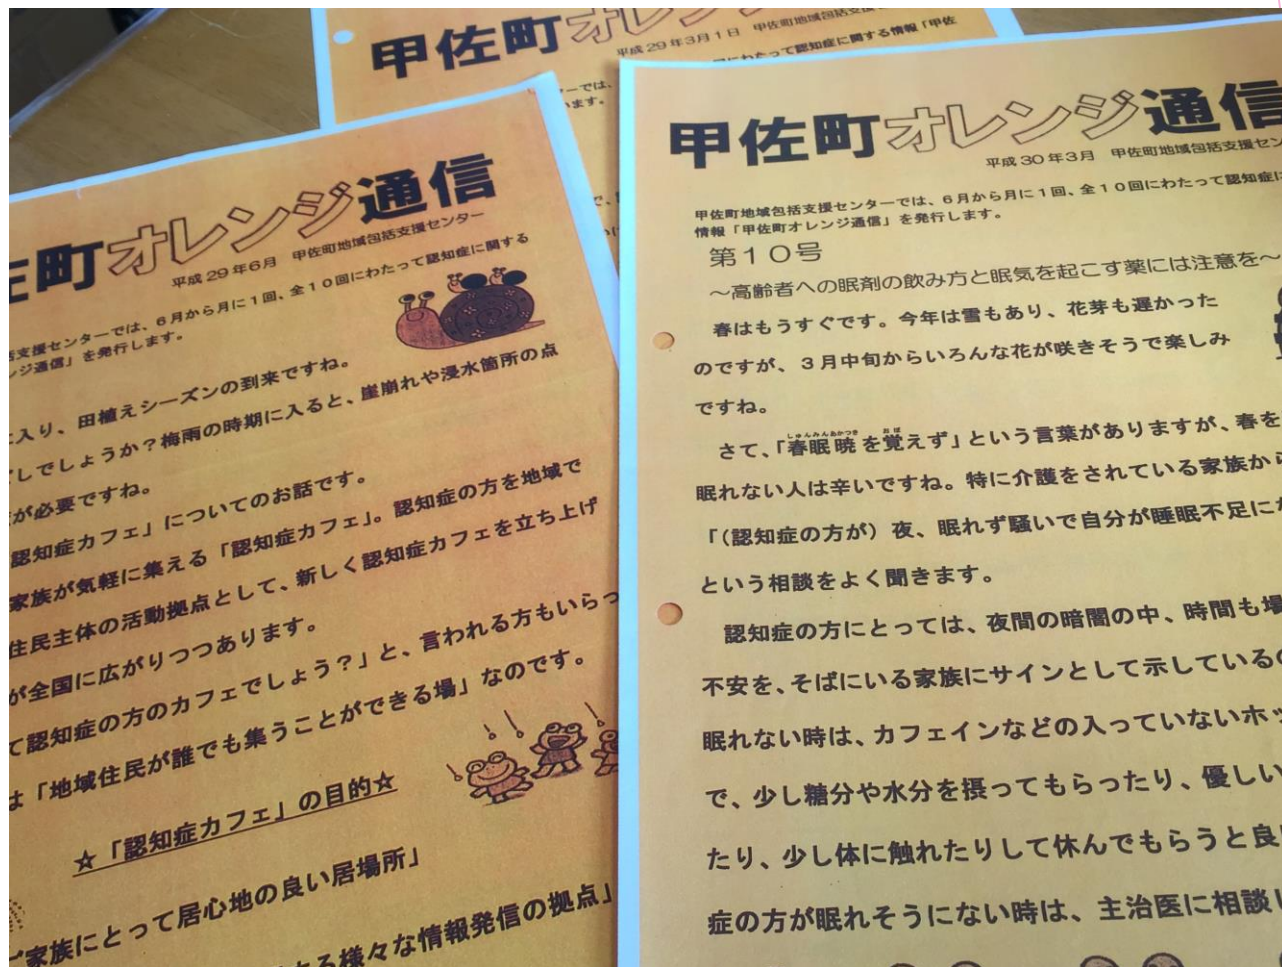 甲佐町オレン
平成29年3月1日 甲佐町地域包括支援
わたって認知症に関する情報「甲佐
町オレンジ通信
平成29年6月 甲佐町地域包括支援センター
支援センターでは、6月から月に1回、全10回にわたって認知症に関する
ンジ通信」を発行します。
入り、田植えシーズンの到来ですね。
でしょうか?梅雨の時期に入ると、崖崩れや浸水箇所の点
が必要ですね。
認知症カフェ」についてのお話です。
家族が気軽に集える「認知症カフェ」。認知症の方を地域で
住民主体の活動拠点として、新しく認知症カフェを立ち上げ
が全国に広がりつつあります。
て認知症の方のカフェでしょう?」と、言われる方もいらっ
は「地域住民が誰でも集うことができる場」なのです。
☆「認知症カフェ」の目的☆
家族にとって居心地の良い居場所」
る様々な情報発信の拠点」
甲佐町オレンジ通信
平成30年3月 甲佐町地域包括支援セン
甲佐町地域包括支援センターでは、6月から月に1回、全10回にわたって認知症に
情報「甲佐町オレンジ通信」を発行します。
第10号
~高齢者への眠剤の飲み方と眠気を起こす薬には注意を~
春はもうすぐです。今年は雪もあり、花芽も遅かった
のですが、3月中旬からいろんな花が咲きそうで楽しみ
ですね。
しゅんみんあかつき おぼ
さて、「春眠暁を覚えず」という言葉がありますが、春を
眠れない人は辛いですね。特に介護をされている家族から
「(認知症の方が)夜、眠れず騒いで自分が睡眠不足にな
という相談をよく聞きます。
認知症の方にとっては、夜間の暗闇の中、時間も場
不安を、そばにいる家族にサインとして示しているの
眠れない時は、カフェインなどの入っていないホッ
で、少し糖分や水分を摂ってもらったり、優しい
たり、少し体に触れたりして休んでもらうと良
症の方が眠れそうにない時は、主治医に相談し